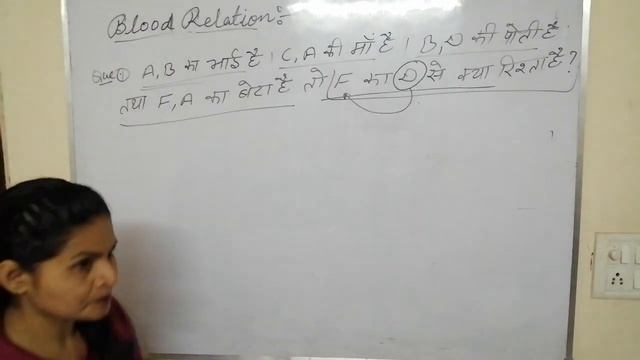 Blood Relation:-
Que ① A, B का भाई है। C, A की माँ है। B, D की पोती है
तथा F, A का बेटा है तो F का D से क्या रिश्ता है?